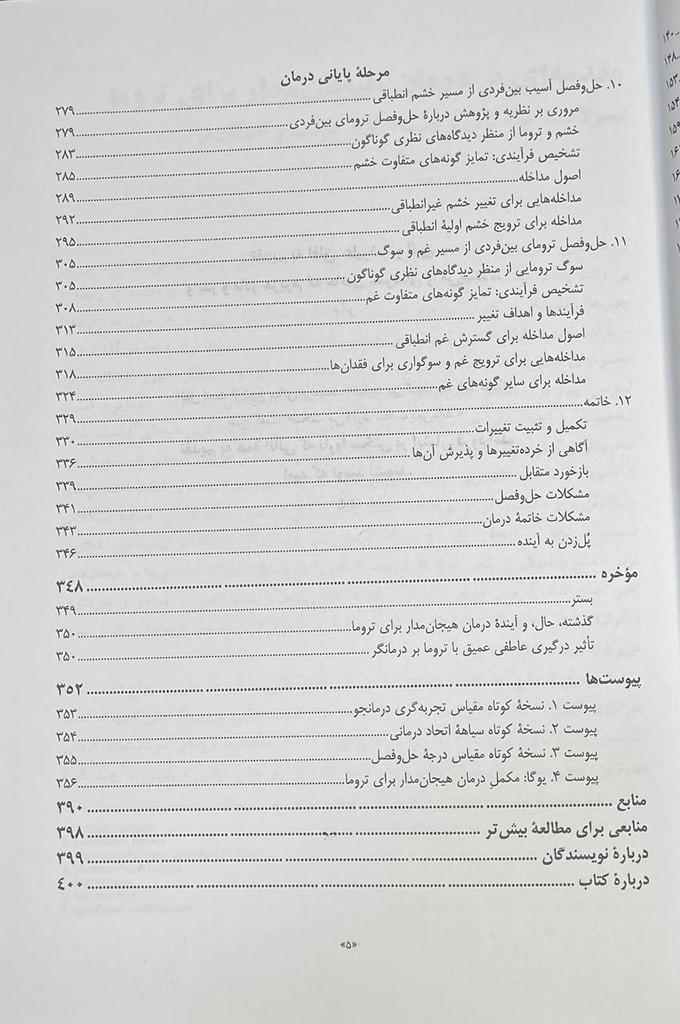 مرحلهٔ پایانی درمان
۱۰. حل‌وفصل آسیب بین‌فردی از مسیر خشم انطباقی ۲۷۹
مروری بر نظریه و پژوهش دربارهٔ حل‌وفصل ترومای بین‌فردی ۲۷۹
خشم و تروما از منظر دیدگاه‌های نظری گوناگون ۲۸۳
تشخیص فرآیندی: تمایز گونه‌های متفاوت خشم ۲۸۵
اصول مداخله ۲۸۹
مداخله‌هایی برای تغییر خشم غیرانطباقی ۲۹۲
مداخله برای ترویج خشم اولیهٔ انطباقی ۲۹۵
۱۱. حل‌وفصل ترومای بین‌فردی از مسیر غم و سوگ ۳۰۵
سوگ ترومایی از منظر دیدگاه‌های نظری گوناگون ۳۰۵
تشخیص فرآیندی: تمایز گونه‌های متفاوت غم ۳۰۸
فرآیندها و اهداف تغییر ۳۱۳
اصول مداخله برای گسترش غم انطباقی ۳۱۵
مداخله‌هایی برای ترویج غم و سوگواری برای فقدان‌ها ۳۱۸
مداخله برای سایر گونه‌های غم ۳۲۴
۱۲. خاتمه ۳۲۹
تکمیل و تثبیت تغییرات ۳۳۰
آگاهی از خرده‌تغییرها و پذیرش آن‌ها ۳۳۶
بازخورد متقابل ۳۳۹
مشکلات حل‌وفصل ۳۴۱
مشکلات خاتمهٔ درمان ۳۴۳
پُل‌زدن به آینده ۳۴۶
مؤخره ۳۴۸
بستر ۳۴۹
گذشته، حال، و آیندهٔ درمان هیجان‌مدار برای تروما ۳۵۰
تأثیر درگیری عاطفی عمیق با تروما بر درمانگر ۳۵۰
پیوست‌ها ۳۵۲
پیوست ۱. نسخهٔ کوتاه مقیاس تجربه‌گری درمانجو ۳۵۳
پیوست ۲. نسخهٔ کوتاه سیاههٔ اتحاد درمانی ۳۵۴
پیوست ۳. نسخهٔ کوتاه مقیاس درجهٔ حل‌وفصل ۳۵۵
پیوست ۴. یوگا: مکمل درمان هیجان‌مدار برای تروما ۳۵۶
منابع ۳۹۰
منابعی برای مطالعهٔ بیش‌تر ۳۹۸
دربارهٔ نویسندگان ۳۹۹
دربارهٔ کتاب ۴۰۰
«۵»